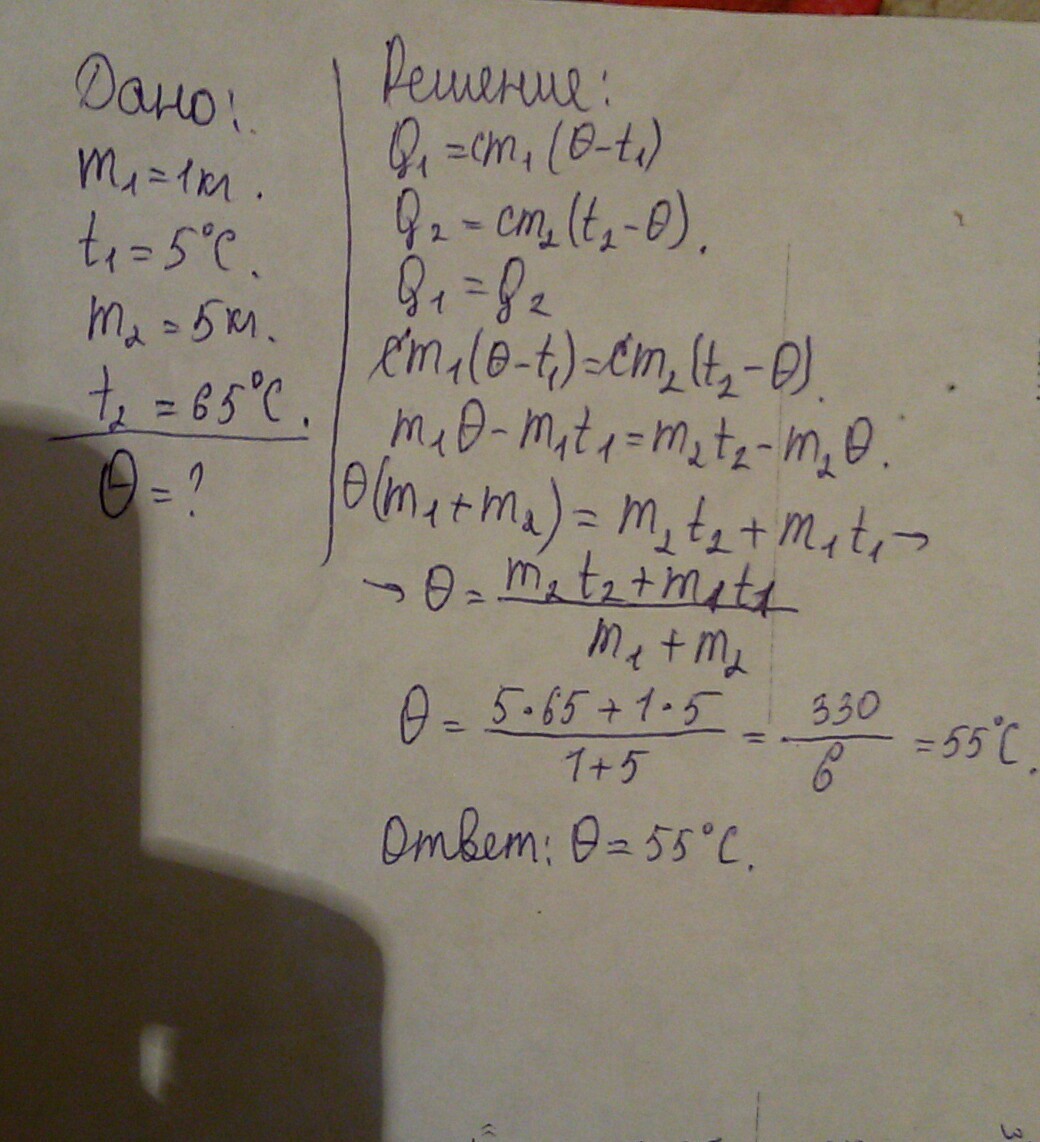 Дано:
m₁ = 1 кг.
t₁ = 5°C.
m₂ = 5 кг.
t₂ = 65°C.
θ = ?
Решение:
Q₁ = cm₁(θ-t₁)
Q₂ = cm₂(t₂-θ).
Q₁ = Q₂
cm₁(θ-t₁) = cm₂(t₂-θ).
m₁θ - m₁t₁ = m₂t₂ - m₂θ.
θ(m₁+m₂) = m₂t₂ + m₁t₁ →
→ θ = (m₂t₂ + m₁t₁)/(m₁ + m₂)
θ = (5·65 + 1·5)/(1+5) = 330/6 = 55°C.
Ответ: θ = 55°C.